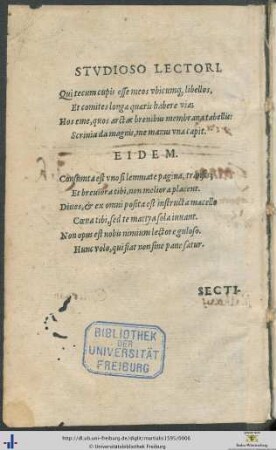 STVDIOSO LECTORI.
Qui tecum cupis esse meos vbicunq; libellos,
Et comites longa quæris habere via:
Hos eme, quos arctat breuibus membrana tabellis:
Scrinia da magnis, me manus vna capit.
EIDEM.
Consumta est vno si lemmate pagina, transis,
Et breuiora tibi, non meliora placent.
Diues, & ex omni posita est instructa macello
Cœna tibi, sed te mattya sola iuuant.
Non opus est nobis nimium lectore guloso.
Hunc volo, qui fiat non sine pane satur.
SECTI-
BIBLIOTHEK
DER
UNIVERSITÄT
FREIBURG
http://dl.ub.uni-freiburg.de/diglit/martialis1595/0006
© Universitätsbibliothek Freiburg